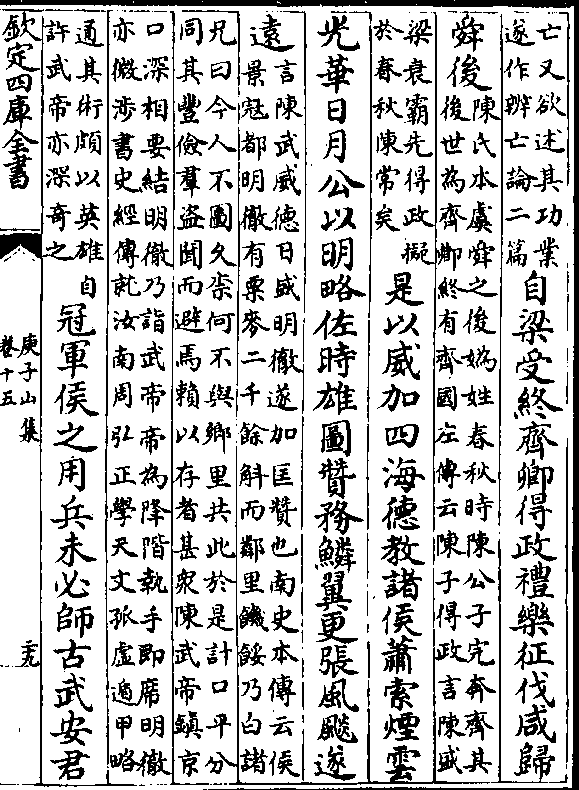 亡又欲述其功業
遂作辨亡論二篇
自梁受終齊卿得政禮樂征伐咸歸
舜後
陳氏本虞舜之後媯姓春秋時陳公子完奔齊其
後世為齊卿終有齊國左傳云陳子得政言陳盛
梁衰霸先得政擬
於春秋陳常矣
是以威加四海德教諸侯蕭索煙雲
光華日月公以明略佐時雄圖贊務鱗翼更張風飈遂
遠
言陳武威德日盛明徹遂加匡贊也南史本傳云侯
景寇都明徹有粟麥二千餘斛而鄰里饑餒乃白諸
兄曰今人不圖久柰何不與鄉里共此於是計口平分
同其豐儉羣盗聞而避焉賴以存者甚衆陳武帝鎮京
口深相要結明徹乃詣武帝帝為降階執手即席明徹
亦微涉書史經傳就汝南周弘正學天文孤虛遁甲略
通其術頗以英雄自
許武帝亦深奇之
冠軍侯之用兵未必師古武安君
欽定四庫全書
庾子山集
卷十五
二十九